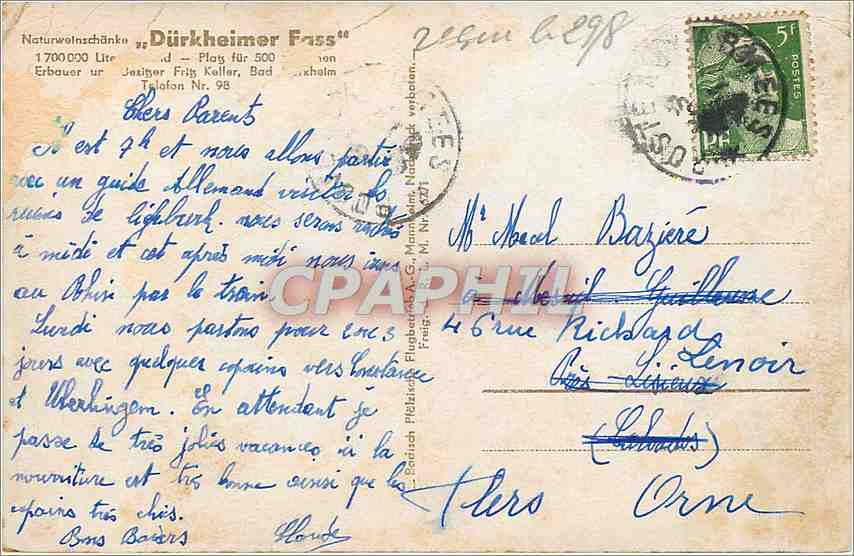 Naturweinschänke „Dürkheimer Fass"
1 700 000 – Platz für 500
Erbauer Besitzer Fritz Keller, Bad
Telefon Nr. 98
le 298
5F
POSTES
RF
POSTE AUX ARMEES
Chers Parents
Il est 7h et nous allons partir
avec un guide Allemand visiter les
ruines de nous serons
à midi et cet après midi nous irons
au Rhin par le train.
Lundi nous partons pour 2 ou 3
jours avec quelques copains vers Constance
et Uberlingem. En attendant je
passe de très jolies vacances ici la
nourriture est très bonne ainsi que les
copains très chis.
Bons Baisers Claude
Badisch Pfälzischer Flugbetrieb A.-G., Mannheim, Nachdruck verboten.
CPAPHIL
Mr Marcel Bazière
à Mesnil Guillaume
46 rue Richard
Lenoir
Près Lisieux
(Calvados)
Flers Orne